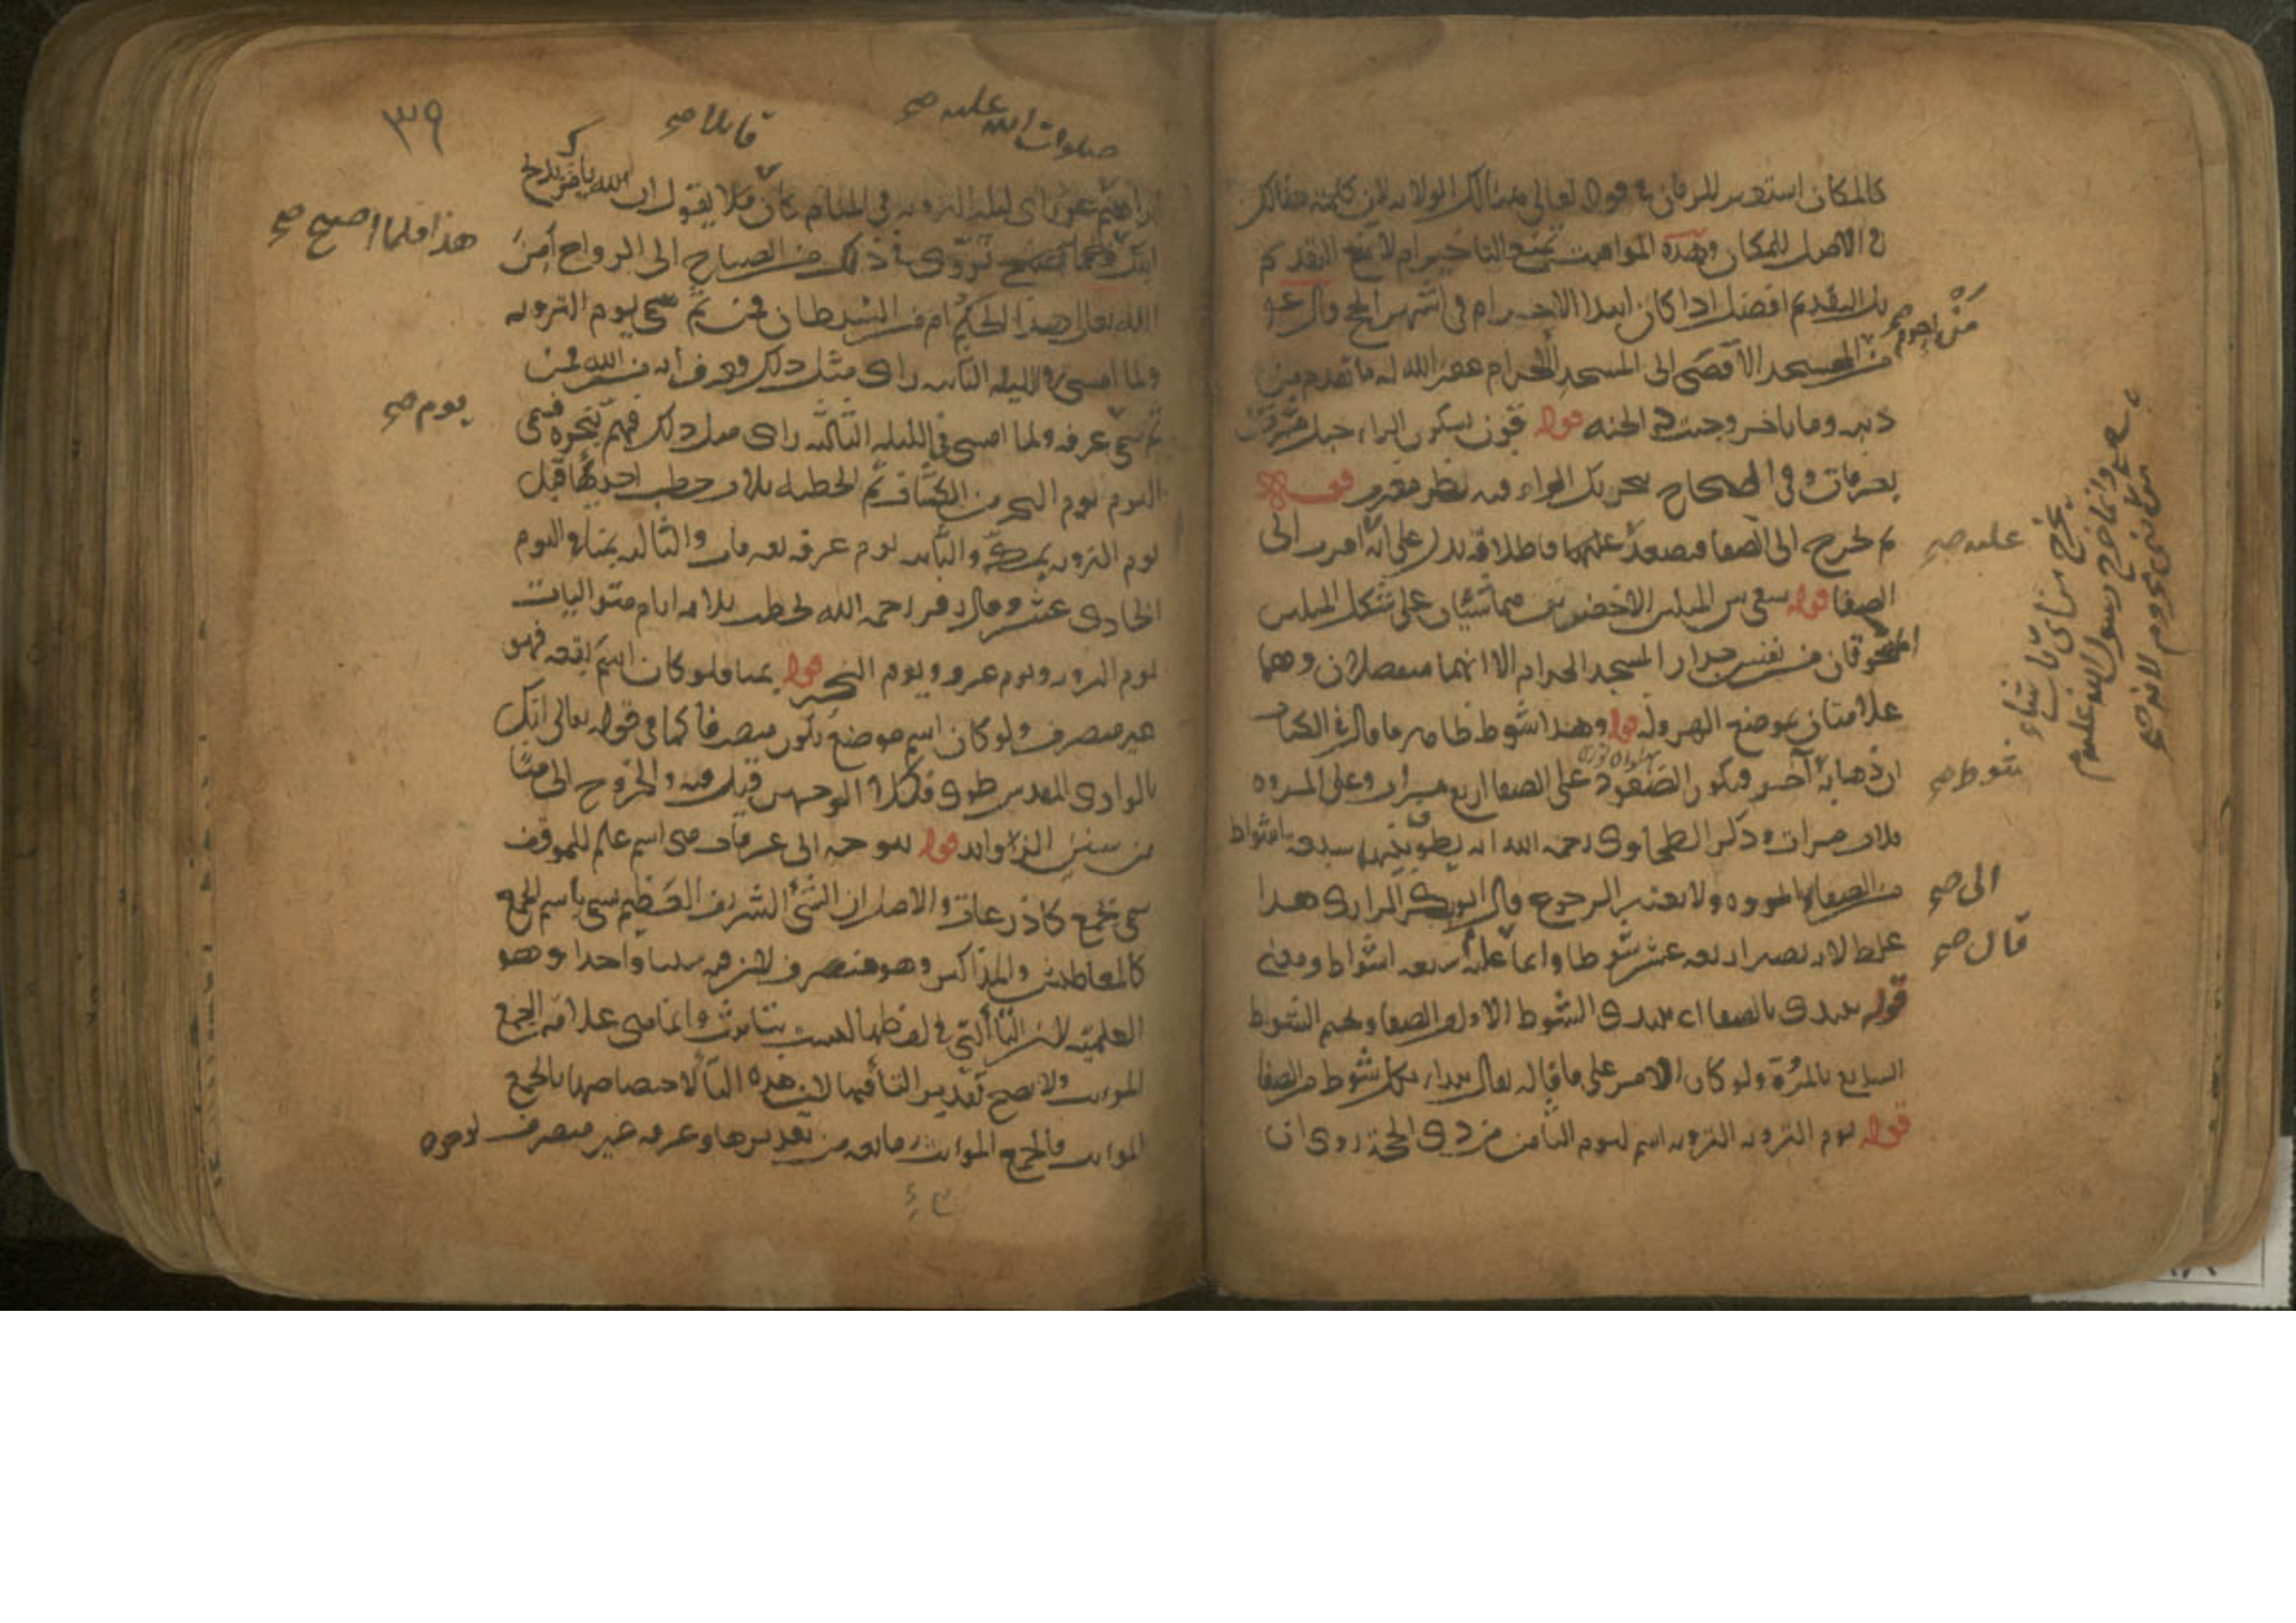 كالمكان استعير للزمان في قوله تعالى هنالك الولاية لان كلمة هنالك
في الاصل للمكان وهذه المواقيت تمنع التاخير ام لا يمنع التقديم
بل التقديم افضل اذا كان ابدا الاحرام في اشهر الحج وقال عم
من احرم صح
من المسجد الاقصى الى المسجد الحرام غفر الله له ما تقدم من
ذنبه وما تاخر وجبت له الجنة قوله قرن بسكون الراء جبل مشرف
بعرفات وفي الصحاح بتحريك الراء وفيه نظر
ثم يخرج الى الصفا فيصعد عليها فاطلاقه يدل على انه
عليه صح
يخرج من اي باب شاء
وانما خرج رسول الله عليه
من باب بني مخزوم لانه صح
الصفا قوله سعى بين الميلين الاخضرين هما شيئان على شكل الميلين
منحوتان من نفس جدار المسجد الحرام الا انهما منفصلان وهما
علامتان لموضع الهرولة قوله وهذا شوط ظاهر ما قال في الكتاب
ان ذهابه آخر فيكون الصعود على الصفا اربع مرات وعلى المروة
شوط صح
ثلاث مرات وذكر الطحاوي رحمه الله انه يطوف بينهما سبعة اشواط
من الصفا بالمروة ولا يعتبر الرجوع قال ابو بكر الرازي هذا
الى صح
غلط لانه يصير اربعة عشر شوطا وانما عليه سبعة اشواط
قال صح
قوله يبتدى بالصفا اى يبتدى الشوط الاول من الصفا ويختم الشوط
السابع بالمروة ولو كان الامر على ما قاله لقال يبدا بكل شوط من الصفا
قوله يوم التروية التروية اسم ليوم الثامن من ذى الحجة روى ان
٣٩
صلوات الله عليه صح
قائلا صح
ابراهيم عم راى ليلة التروية في المنام كان قائلا يقول ان الله يامرك بذبح
ابنك فلما اصبح تروى في ذلك من الصباح الى الرواح امن
هذا فلما اصبح صح
الله تعالى هذا الحكم ام من الشيطان فمن ثم سمى يوم التروية
ولما امسى في الليلة الثانية راى مثل ذلك وعرف انه من الله فمن
ثم سمى عرفة ولما امسى في الليلة الثالثة راى مثل ذلك فهم بنحره فسمى
يوم صح
اليوم يوم النحر من الكشاف ثم الخطبة ثلاث خطب احديها قبل
يوم التروية بمكة والثانية يوم عرفة بعرفات والثالثة بمنا في اليوم
الحادى عشر وقال زفر رحمه الله يخطب ثلاثة ايام متواليات
يوم التروية ويوم عرفة ويوم النحر قوله بمنا فلو كان اسم بقعة فهو
غير منصرف ولو كان اسم موضع يكون منصرفا كما في قوله تعالى انك
بالوادى المقدس طوى فكلا الوجهين قيل فيه والخروج الى منا
من سنن الزوائد قوله يتوجه الى عرفات هى اسم علم للموقف
سمى بجمع كاذرعات والاصل ان الشئ الشريف العظيم سمى باسم الجمع
وهو منصرف لان فيه سببا واحدا وهو
العلمية لان التا التى في لفظها ليست بتانيث وانما هى علامة الجمع
المونث ولا يصح تقدير التا فيها لان هذه التا لاختصاصها بالجمع
المونث والجمع المونث مانعة من تقديرها وعرفة غير منصرف لوجود